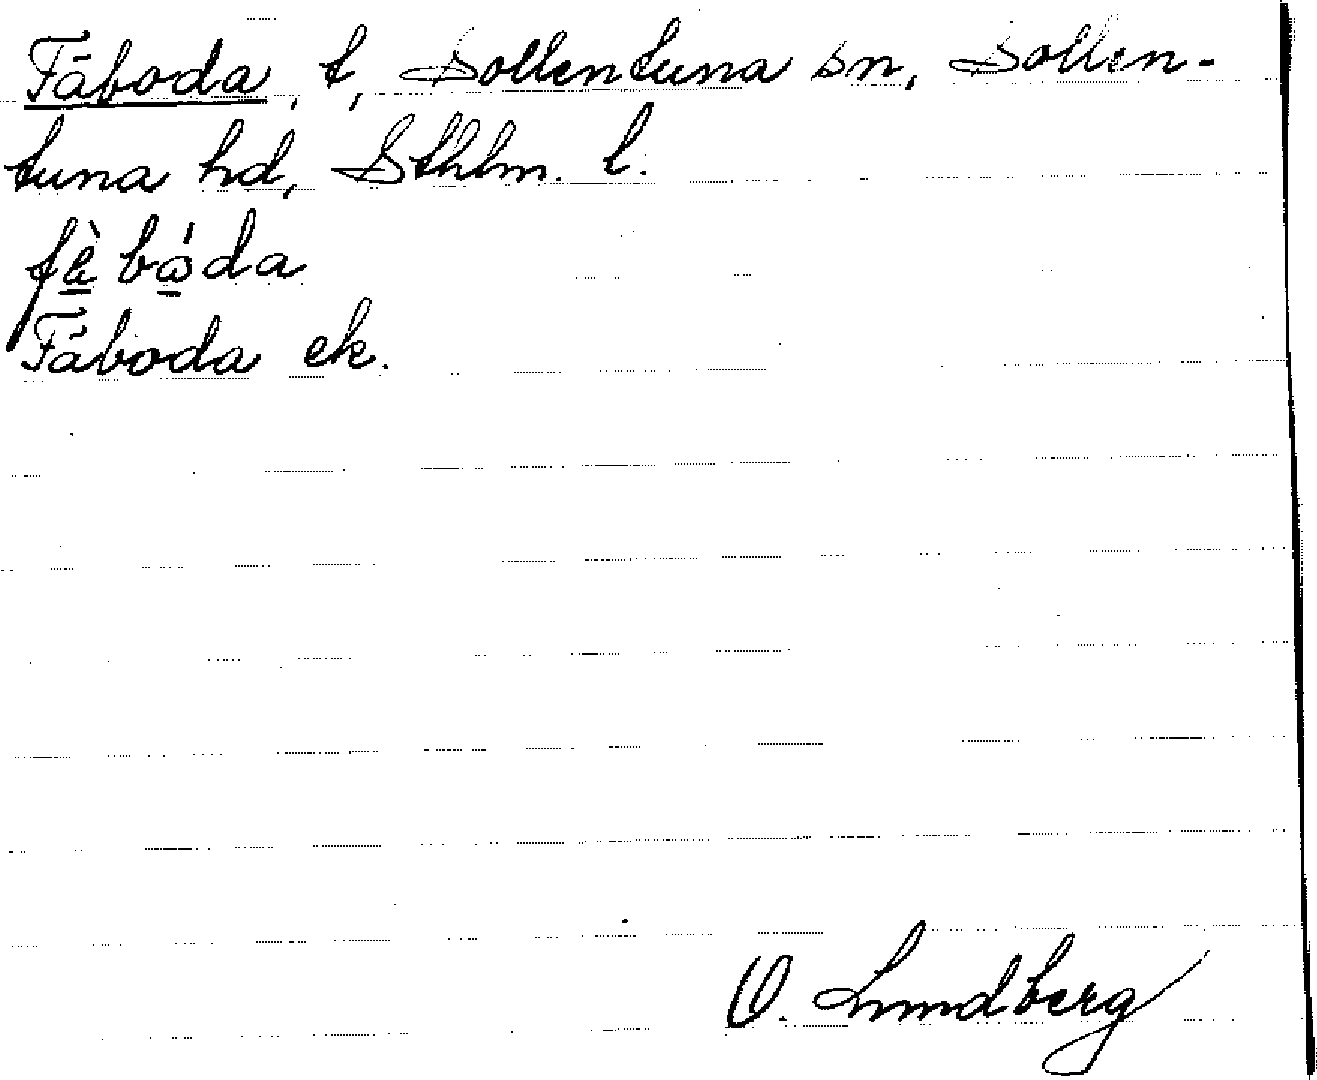 Fäboda, t, Sollentuna sn, Sollen-
tuna hd, Sthlm. l.
Fäboda ek.
O. Lundberg